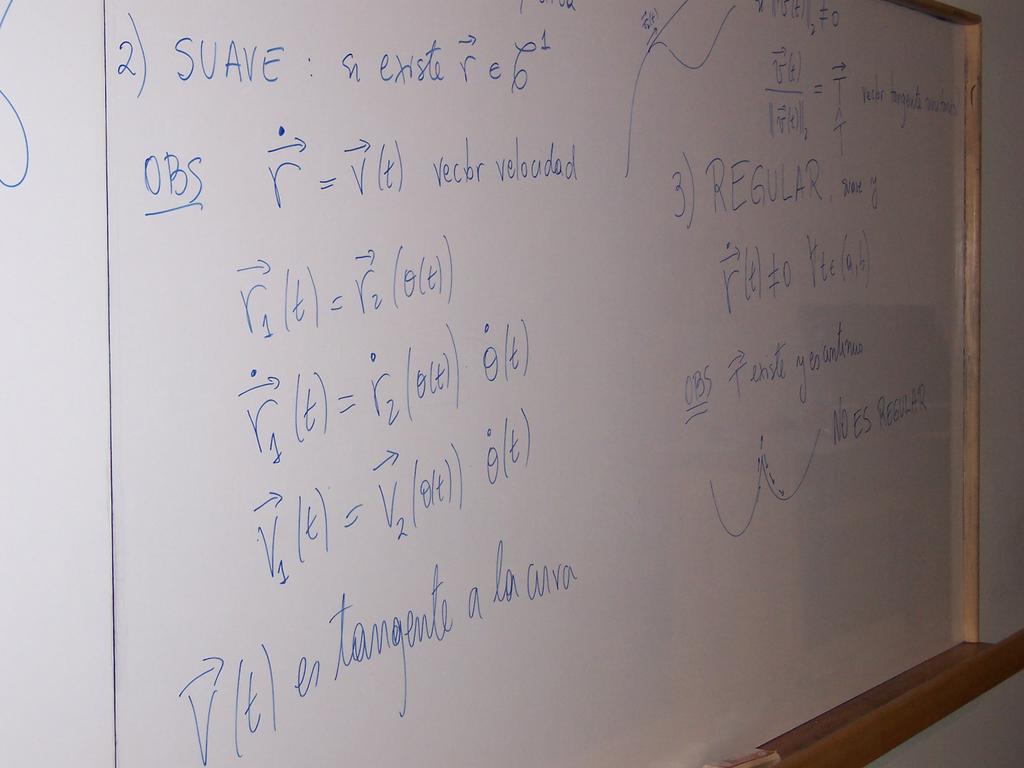 2) SUAVE : si existe r⃗ ∈ 𝒞¹
OBS ṙ⃗ = v⃗(t) vector velocidad
r⃗₁(t) = r⃗₂(θ(t))
ṙ⃗₁(t) = ṙ₂(θ(t)) · θ̇(t)
v⃗₁(t) = v⃗₂(θ(t)) θ̇(t)
v⃗(t) es tangente a la curva
v⃗(t)
si ‖v⃗(t)‖₂ ≠ 0
v⃗(t) / ‖v⃗(t)‖₂ = T⃗ vector tangente unitario
T̂
3) REGULAR, suave y
ṙ⃗(t) ≠ 0 ∀t ∈ (a,b)
OBS T⃗ existe y es continuo
NO ES REGULAR